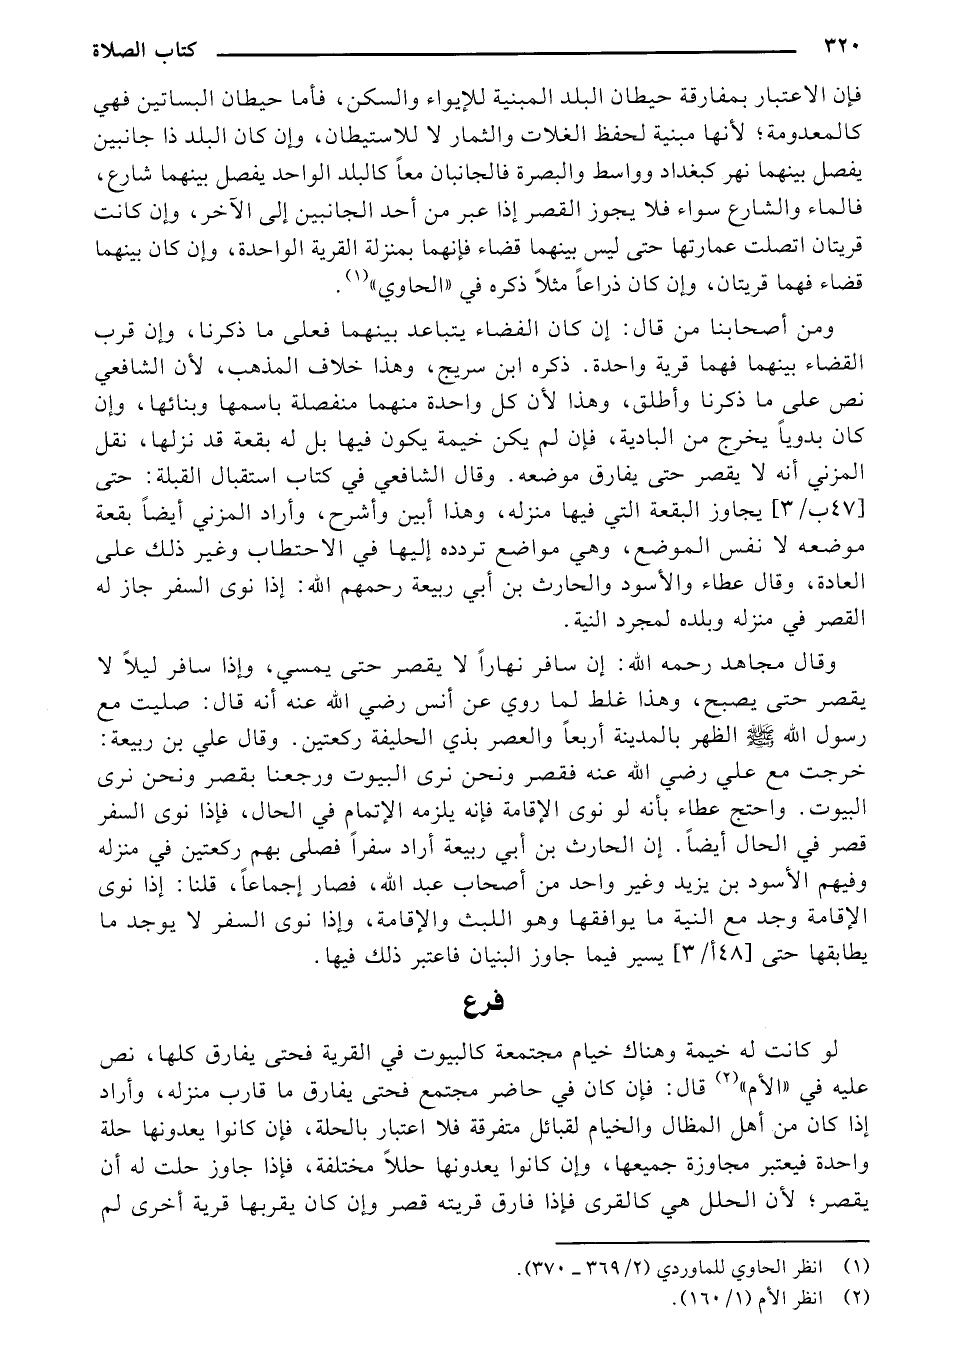 ٣٢٠ كتاب الصلاة
فإن الاعتبار بمفارقة حيطان البلد المبنية للإيواء والسكن، فأما حيطان البساتين فهي
كالمعدومة؛ لأنها مبنية لحفظ الغلات والثمار لا للاستيطان، وإن كان البلد ذا جانبين
يفصل بينهما نهر كبغداد وواسط والبصرة فالجانبان معاً كالبلد الواحد يفصل بينهما شارع،
فالماء والشارع سواء فلا يجوز القصر إذا عبر من أحد الجانبين إلى الآخر، وإن كانت
قريتان اتصلت عمارتها حتى ليس بينهما قضاء فإنهما بمنزلة القرية الواحدة، وإن كان بينهما
قضاء فهما قريتان، وإن كان ذراعاً مثلاً ذكره في «الحاوي»(١).
ومن أصحابنا من قال: إن كان الفضاء يتباعد بينهما فعلى ما ذكرنا، وإن قرب
القضاء بينهما فهما قرية واحدة. ذكره ابن سريج، وهذا خلاف المذهب، لأن الشافعي
نص على ما ذكرنا وأطلق، وهذا لأن كل واحدة منهما منفصلة باسمها وبنائها، وإن
كان بدوياً يخرج من البادية، فإن لم يكن خيمة يكون فيها بل له بقعة قد نزلها، نقل
المزني أنه لا يقصر حتى يفارق موضعه. وقال الشافعي في كتاب استقبال القبلة: حتى
[٤٧ب/ ٣] يجاوز البقعة التي فيها منزله، وهذا أبين وأشرح، وأراد المزني أيضاً بقعة
موضعه لا نفس الموضع، وهي مواضع تردده إليها في الاحتطاب وغير ذلك على
العادة، وقال عطاء والأسود والحارث بن أبي ربيعة رحمهم الله: إذا نوى السفر جاز له
القصر في منزله وبلده لمجرد النية.
وقال مجاهد رحمه الله: إن سافر نهاراً لا يقصر حتى يمسي، وإذا سافر ليلاً لا
يقصر حتى يصبح، وهذا غلط لما روي عن أنس رضي الله عنه أنه قال: صليت مع
رسول الله ﷺ الظهر بالمدينة أربعاً والعصر بذي الحليفة ركعتين. وقال علي بن ربيعة:
خرجت مع علي رضي الله عنه فقصر ونحن نرى البيوت ورجعنا بقصر ونحن نرى
البيوت. واحتج عطاء بأنه لو نوى الإقامة فإنه يلزمه الإتمام في الحال، فإذا نوى السفر
قصر في الحال أيضاً. إن الحارث بن أبي ربيعة أراد سفراً فصلى بهم ركعتين في منزله
وفيهم الأسود بن يزيد وغير واحد من أصحاب عبد الله، فصار إجماعاً، قلنا: إذا نوى
الإقامة وجد مع النية ما يوافقها وهو اللبث والإقامة، وإذا نوى السفر لا يوجد ما
يطابقها حتى [٤٨أ/ ٣] يسير فيما جاوز البنيان فاعتبر ذلك فيها.
فرع
لو كانت له خيمة وهناك خيام مجتمعة كالبيوت في القرية فحتى يفارق كلها، نص
عليه في «الأم»(٢) قال: فإن كان في حاضر مجتمع فحتى يفارق ما قارب منزله، وأراد
إذا كان من أهل المظال والخيام لقبائل متفرقة فلا اعتبار بالحلة، فإن كانوا يعدونها حلة
واحدة فيعتبر مجاوزة جميعها، وإن كانوا يعدونها حللاً مختلفة، فإذا جاوز حلت له أن
يقصر؛ لأن الحلل هي كالقرى فإذا فارق قريته قصر وإن كان يقربها قرية أخرى لم
(١) انظر الحاوي للماوردي (٢/ ٣٦٩ ـ ٣٧٠).
(٢) انظر الأم (١/ ١٦٠).